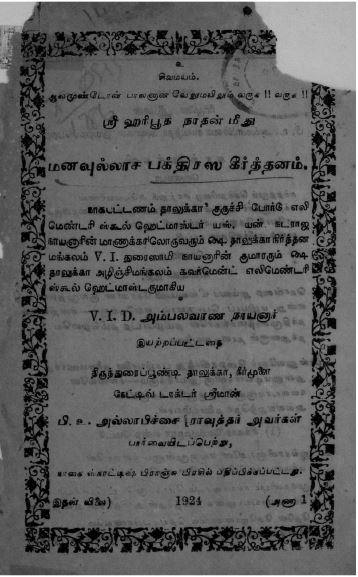 உ
சிவமயம்.
ஆலமுண்டோன் பாலனான வேலுமயிலும் வருக !! வருக !!
ஸ்ரீ ஹரிபூத நாதன் மீது
மனவுல்லாச பக்திரஸ கீர்த்தனம்.
நாகபட்டணம் தாலுக்கா குருச்சி போர்டு எலி
மெண்டரி ஸ்கூல் ஹெட்மாஸ்டர் யஸ். யன். நடராஜ
நாயனாரின் மாணாக்கரிலொருவரும் ஷை தாலுக்கா
மங்கலம் V. I. துரைஸாமி நாயனாரின் குமாரரும் ஷை
தாலுக்கா அழிஞ்சிமங்கலம் கவர்மெண்ட் எலிமெண்டரி
ஸ்கூல் ஹெட்மாஸ்டருமாகிய
V. I. D. அம்பலவாண நாயனார்
இயற்றப்பட்டதை
திருத்துறைப்பூண்டி தாலுக்கா,
நேட்டிவ் டாக்டர் ஸ்ரீமான்
பி. உ. அல்லாபிச்சை ராவுத்தர் அவர்கள்
பார்வையிடப்பெற்று,
நாகை ஸ்காட்டிஷ் பிராஞ்சு பிரஸில் பதிப்பிக்கப்பட்டது.
இதன் விலை) 1924 (அணா 1